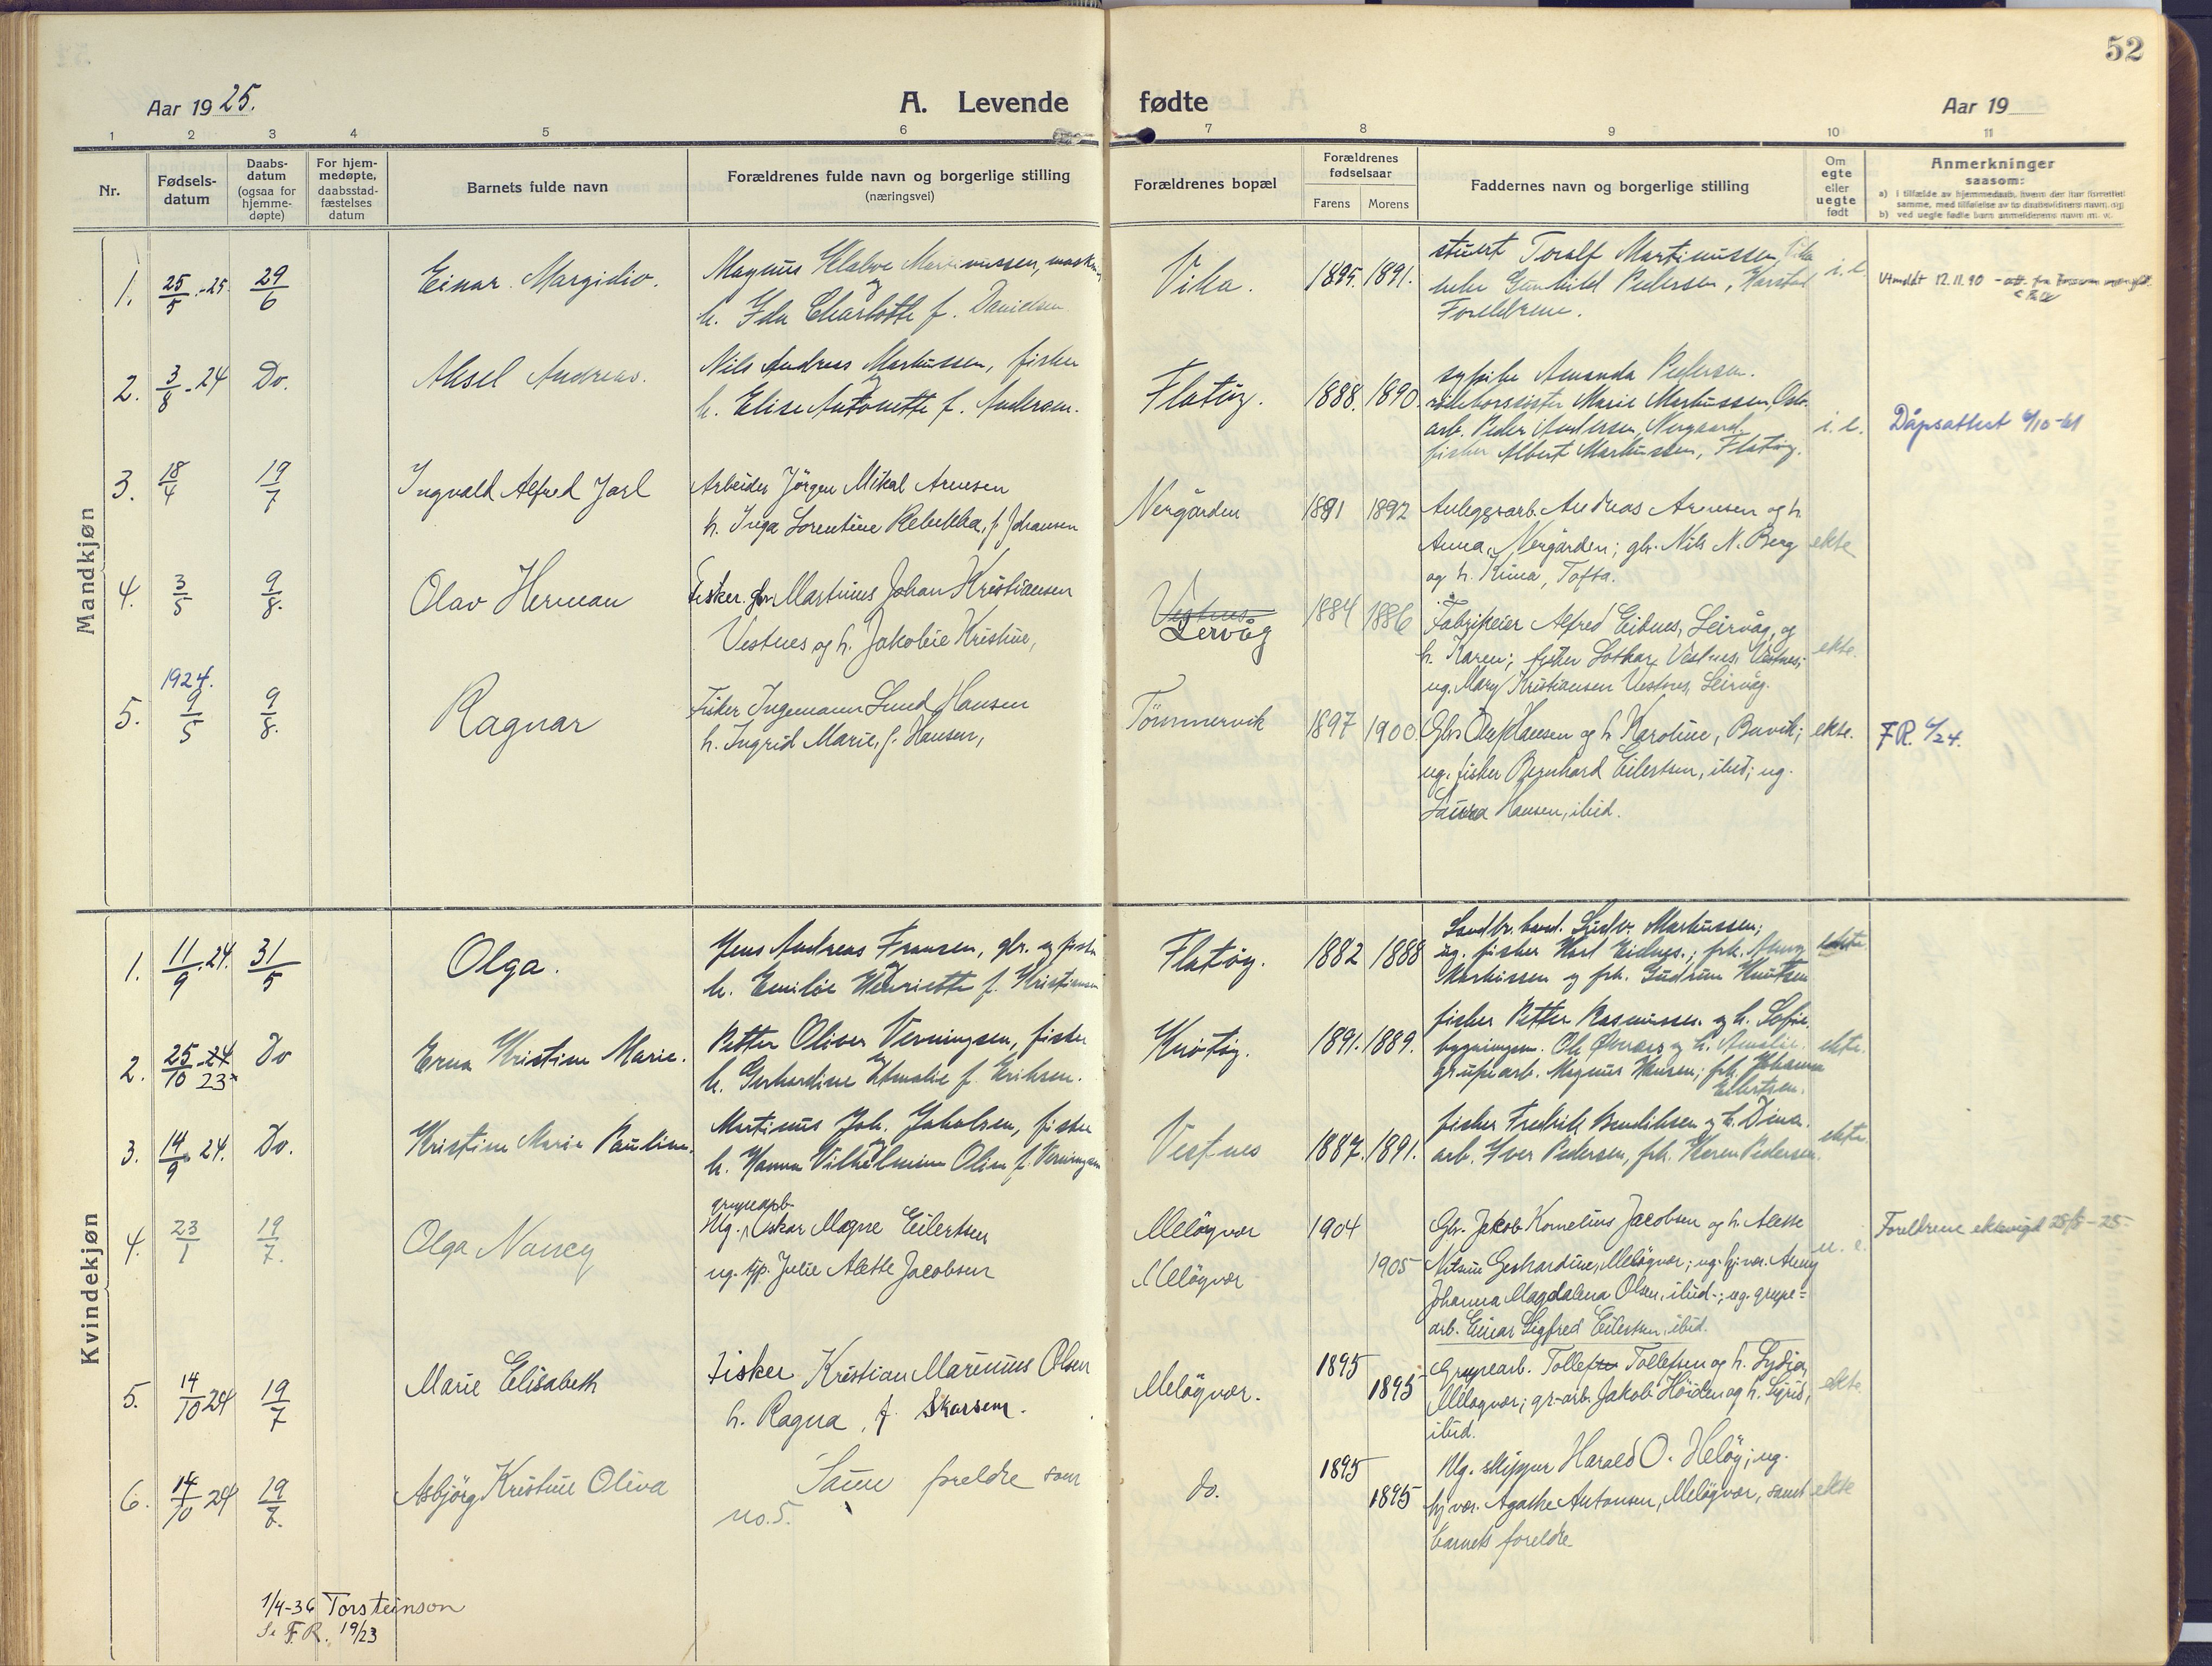 52
Aar 1925.
A. Levende fødte
Aar 19
1 2 3 4 5 6 7 8 9 10 11
Nr.
Fødsels-datum
Daabs-datum (ogsaa for hjemme-døpte)
For hjem-medøpte, daabsstad-fæstelses datum
Barnets fulde navn
Forældrenes fulde navn og borgerlige stilling (næringsvei)
Forældrenes bopæl
Forældrenes fødselsaar
Farens Morens
Faddernes navn og borgerlige stilling
Om egte eller uegte født
Anmerkninger saasom:
a) i tilfælde av hjemmedaab, hvem der har forrettet samme, med tilføielse av to daabsvidners navn, og
b) ved uegte fødte barn anmelderens navn m. v.
Mandkjøn
1. 25/5 -25. 29/6 Einar Margidio.
Magnus Klabve Martinussen,
og
h. Ida Charlotte f. Danielsen
Vika. 1895. 1891.
stuert Toralf Martinussen, Vika
Gunhild Pedersen, Harstad
Foreldrene.
i. e.
Utmeldt 12.11.90
2. 3/8 -24 Do. Aksel Andreas.
Nils Andreas Markussen, fisker
og
h. Elise Antonette f. Andersen.
Flatøy. 1888. 1890.
Amanda Pedersen.
Marie Markussen, Oslo.
arb. Peder Andersen, Nergaard
fisker Albert Markussen, Flatøy.
i. e.
Dåpsattest 6/10-61
3. 18/4 19/7 Ingvald Alfred Jarl
Arbeider Jörgen Mikal Arnesen
h. Inga Lorentine Rebekka, f. Johansen
Nergården 1891 1892
Anleggsarb. Andreas Arnesen og h.
Anna, Nergården; gbr. Nils N. Berg
og h. Kima, Tofta.
ekte
4. 3/5 9/8. Olav Herman
Fisker gbr. Martinus Johan Kristiansen
Vestnes og h. Jakobie Kristine,
Vestnes
Lervåg
1884 1886
Fabrikeier Alfred Eidnes, Leirvåg, og
h. Karen; fisker Lothar Vestnes, Vestnes;
ug. Mary Kristiansen Vestnes, Leirvåg.
ekte.
1924.
5. 9/5 9/8. Ragnar
Fisker Ingemann Lund Hansen
h. Ingrid Marie, f. Hansen,
Tömmervik 1897 1900.
Gbr. Ole Hansen og h. Karoline, Buvik;
ug. fisker Bernhard Eilertsen, ibid; ug.
Laura Hansen, ibid.
ekte.
F.R. 4/24.
Kvindekjøn
1. 11/9 .24. 31/5 Olga.
Jens Andreas Fransen, gbr. og fisker
og
h. Emilie Henriette f. Kristiansen
Flatøy. 1882 1888
Landbr. kand. Ludv. Markussen;
ug. fisker Karl Eidnes.; frk.
Markussen og frk. Gudrun Knutsen
ekte
2. 25/10 -24 23 Do Erna Kristine Marie.
Petter Oliver Verningsen, fisker
og
h. Gerhardine Amalie f. Eriksen.
Knötøy. 1891. 1889.
fisker Petter Rasmussen og h. Sofie.
bygningsm. Ole og h. Amalie.
grupearb. Magnus Hansen; frk. Johanna
Eilertsen.
ekte.
3. 14/9 24. Do. Kristine Marie Pauline.
Martinus Joh. Jakobsen, fisker
og
h. Hanna Vilhelmine Oline f. Verningsen
Vestnes 1887. 1891.
fisker Fredrik Bendiksen og h. Dina.
arb. Iver Pedersen, frk. Karen Pedersen.
ekte.
4. 23/1 19/7. Olga Nancy
grupearb.
Ug. Oskar Magne Eilertsen
ug. tjp. Julie Alette Jacobsen
Melögvær 1904
Melögvær 1905
Gbr. Jakob Kornelius Jacobsen og h. Alette
Nilsine Gerhardine, Melögvær; ug. hj.vær. Anny
Johanna Magdalena Olsen, ibid.; ug. grupe-
arb. Einar Sigfred Eilertsen, ibid.
u. e.
Foreldrene ektevigd 25/5-25-
5. 14/10 24 19/7 Marie Elisabeth
Fisker Kristian Marinius Olsen
h. Ragna, f. Skarsem.
Melögvær. 1895 1895
Grupearb. Tollefsen og h. Lydia,
Melögvær; gr-arb. Jakob Höiden og h. Sigrid,
ibid.
ekte
6. 14/10 24 19/7. Asbjörg Kristine Oliva
Same foreldre som
no. 5.
do. 1895 1895
Ug. skipper Harald O. Helöy; ug.
hj.vær. Agathe Antonsen, Melögvær, samt
barnets foreldre
ekte
1/4-36 Torsteinson
Se F.R. 19/23